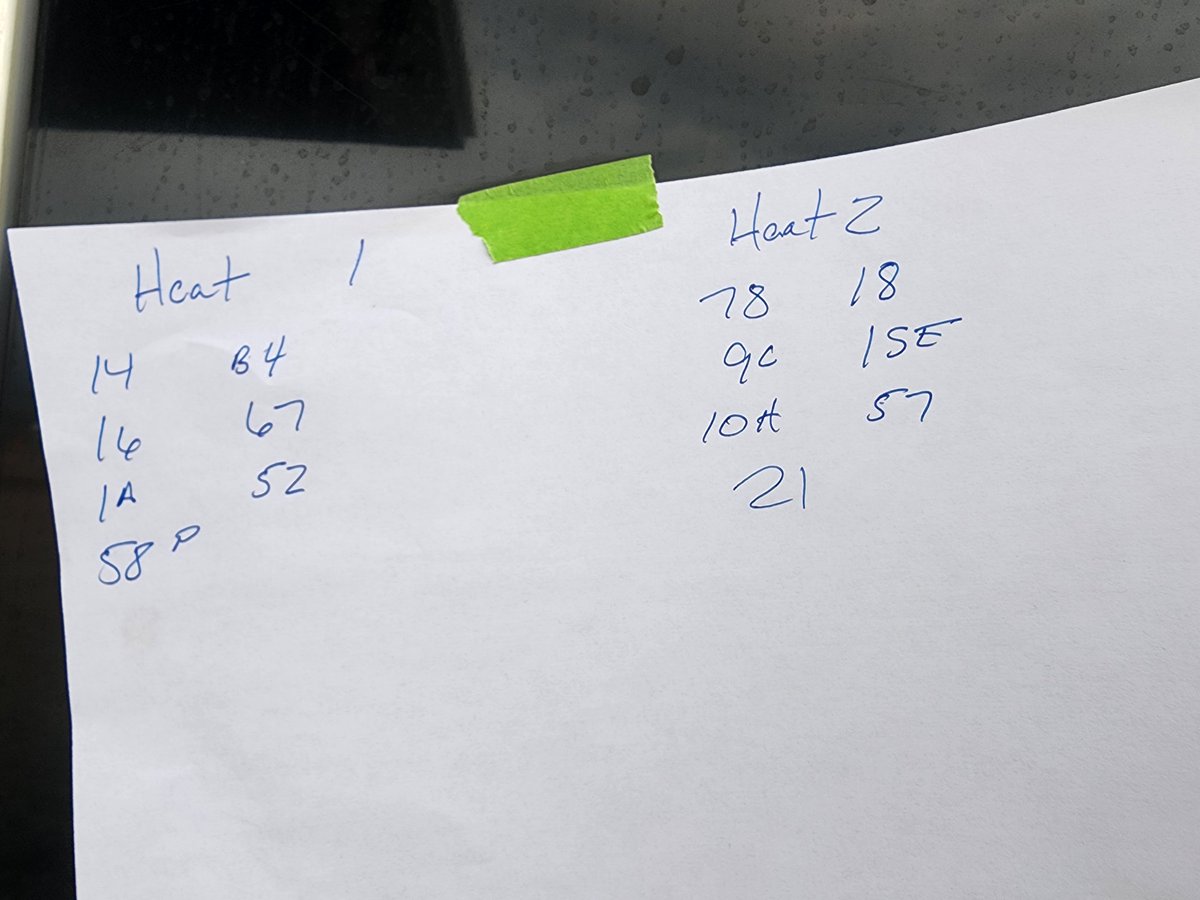 Heat 1
14 B4
16 67
1A 52
58 P
Heat 2
78 18
9C 15E
10A 57
21